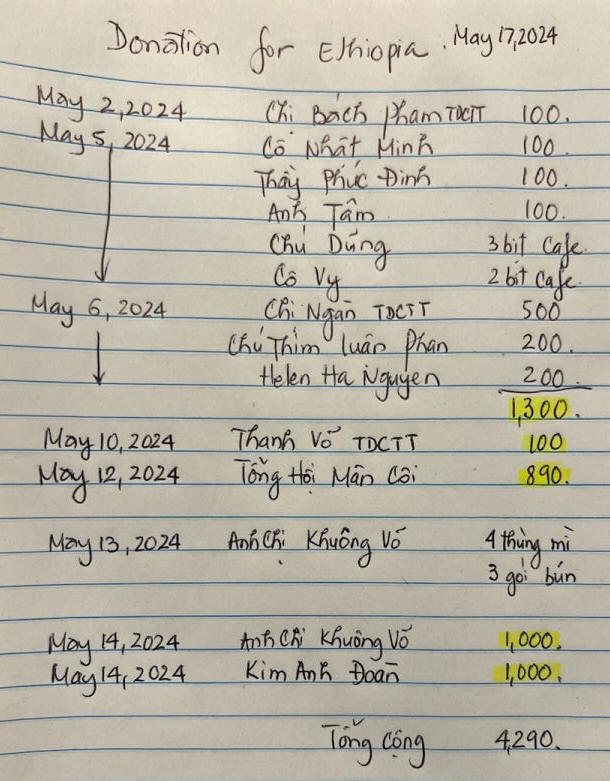 Donation for Ethiopia. May 17, 2024
May 2, 2024 Chi Bách Pham TDCTT 100.
May 5, 2024 Cô Nhất Minh 100.
Thầy Phúc Đinh 100.
Anh Tâm 100.
Chú Dũng 3 bịt Cafe.
Cô Vy 2 bịt Cafe.
May 6, 2024 Chi Ngân TDCTT 500
Chú Thím Luân Phan 200.
Helen Ha Nguyen 200.
1,300.
May 10, 2024 Thanh Võ TDCTT 100
May 12, 2024 Tổng Hội Mân Côi 890.
May 13, 2024 Anh Chị Khuông Võ 4 thùng mì
3 gói bún
May 14, 2024 Anh Chi Khuông Võ 1,000.
May 14, 2024 Kim Anh Đoàn 1,000.
Tổng Cộng 4,290.